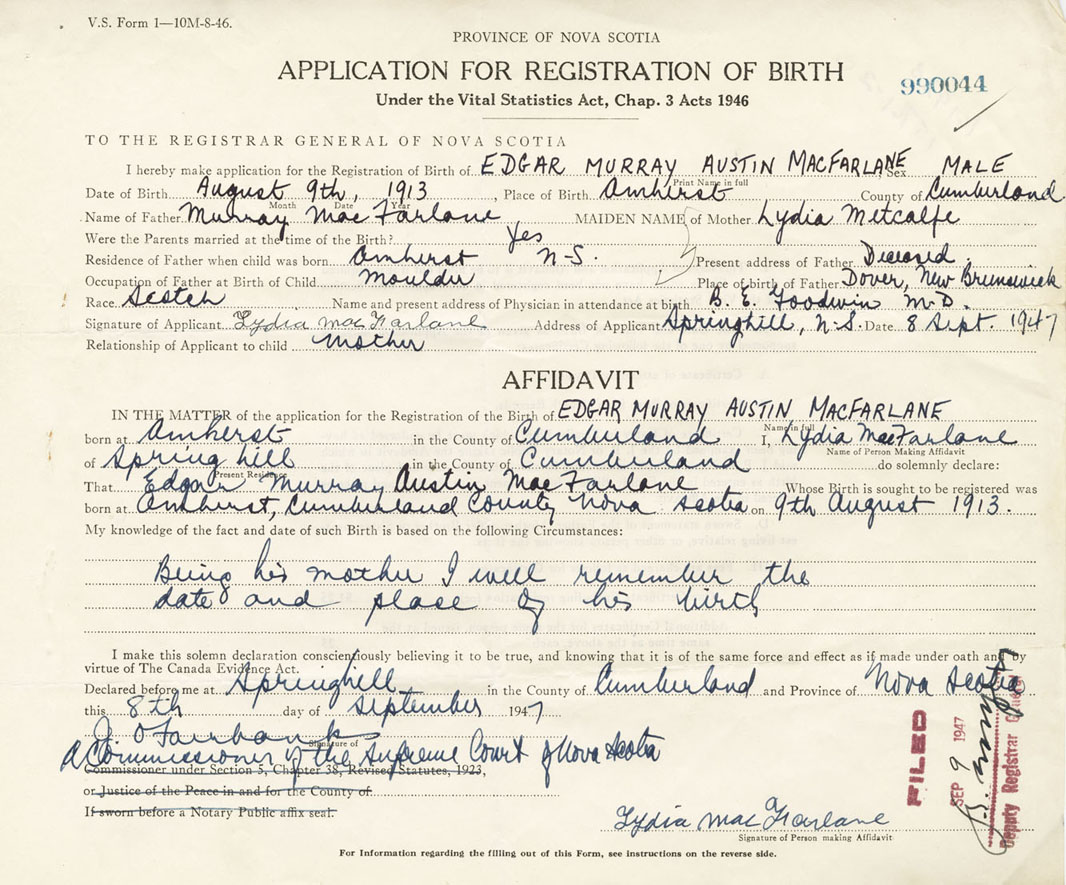 V.S. Form 1—10M-8-46.
PROVINCE OF NOVA SCOTIA
APPLICATION FOR REGISTRATION OF BIRTH
990044
Under the Vital Statistics Act, Chap. 3 Acts 1946
TO THE REGISTRAR GENERAL OF NOVA SCOTIA
I hereby make application for the Registration of Birth of EDGAR MURRAY AUSTIN MACFARLANE Sex MALE
Print Name in full
Date of Birth August 9th, 1913, Place of Birth Amhirst County of Cumberland
Month Date Year
Name of Father Murray MacFarlane, MAIDEN NAME of Mother Lydia Metcalfe
Were the Parents married at the time of the Birth? Yes
Residence of Father when child was born Amherst N-S. Present address of Father Deceased
Occupation of Father at Birth of Child Moulder Place of birth of Father Dover, New Brunswick
Race Scotch Name and present address of Physician in attendance at birth B. E. Goodwin M.D.
Signature of Applicant Lydia macFarlane Address of Applicant Springhill, N.S. Date 8 Sept. 1947
Relationship of Applicant to child Mother
AFFIDAVIT
IN THE MATTER of the application for the Registration of the Birth of EDGAR MURRAY AUSTIN MACFARLANE
Name in full
born at Amherst in the County of Cumberland I, Lydia MacFarlane
Name of Person Making Affidavit
of Spring hill in the County of Cumberland do solemnly declare:
Present Residence
That Edgar Murray Austin MacFarlane Whose Birth is sought to be registered was
born at Amhurst, Cumberland County Nova Scotia on 9th August 1913.
My knowledge of the fact and date of such Birth is based on the following Circumstances:
Being his mother I well remember the
date and place of his birth
I make this solemn declaration conscientiously believing it to be true, and knowing that it is of the same force and effect as if made under oath and by
virtue of The Canada Evidence Act.
Declared before me at Springhill in the County of Cumberland and Province of Nova Scotia
this 8th day of September 1947
J. O Fairbanks
Signature of
A Commissioner of the Supreme Court of Nova Scotia
Commissioner under Section 5, Chapter 38, Revised Statutes, 1923,
or Justice of the Peace in and for the County of
If sworn before a Notary Public affix seal.
Lydia macFarlane
Signature of Person making Affidavit
FILED
SEP 9 1947
Deputy Registrar
For Information regarding the filling out of this Form, see instructions on the reverse side.